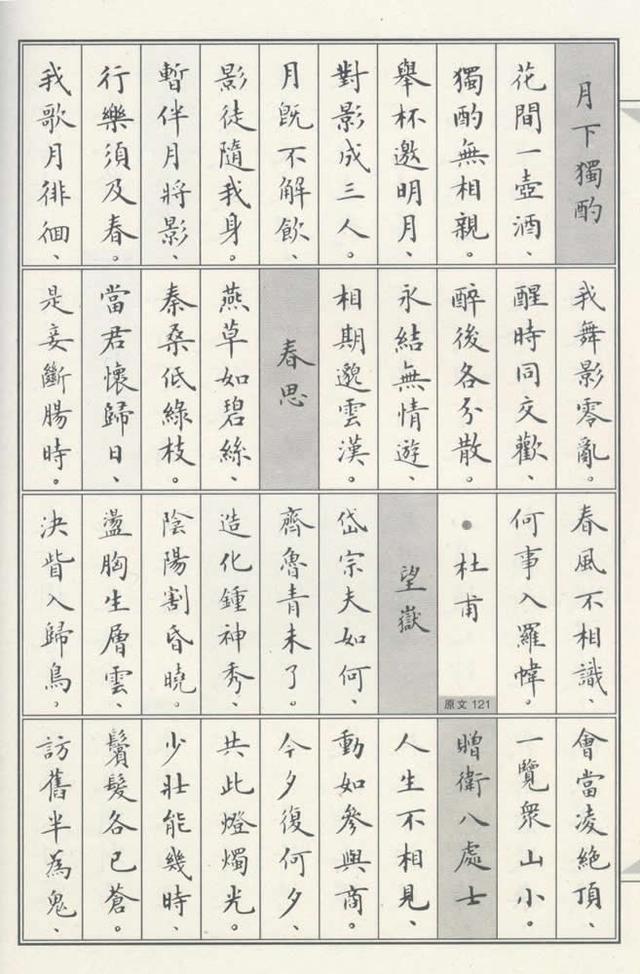 月下獨酌
花間一壺酒、
獨酌無相親。
舉杯邀明月、
對影成三人。
月既不解飲、
影徒隨我身。
暫伴月將影、
行樂須及春。
我歌月徘徊、
我舞影零亂。
醒時同交歡、
醉後各分散。
永結無情遊、
相期邈雲漢。
春思
燕草如碧絲、
秦桑低綠枝。
當君懷歸日、
是妾斷腸時。
春風不相識、
何事入羅幃。
•杜甫
原文 121
望嶽
岱宗夫如何、
齊魯青未了。
造化鍾神秀、
陰陽割昏曉。
盪胸生層雲、
決眥入歸鳥。
會當凌絕頂、
一覽眾山小。
贈衛八處士
人生不相見、
動如參與商。
今夕復何夕、
共此燈燭光。
少壯能幾時、
鬢髮各已蒼。
訪舊半為鬼、